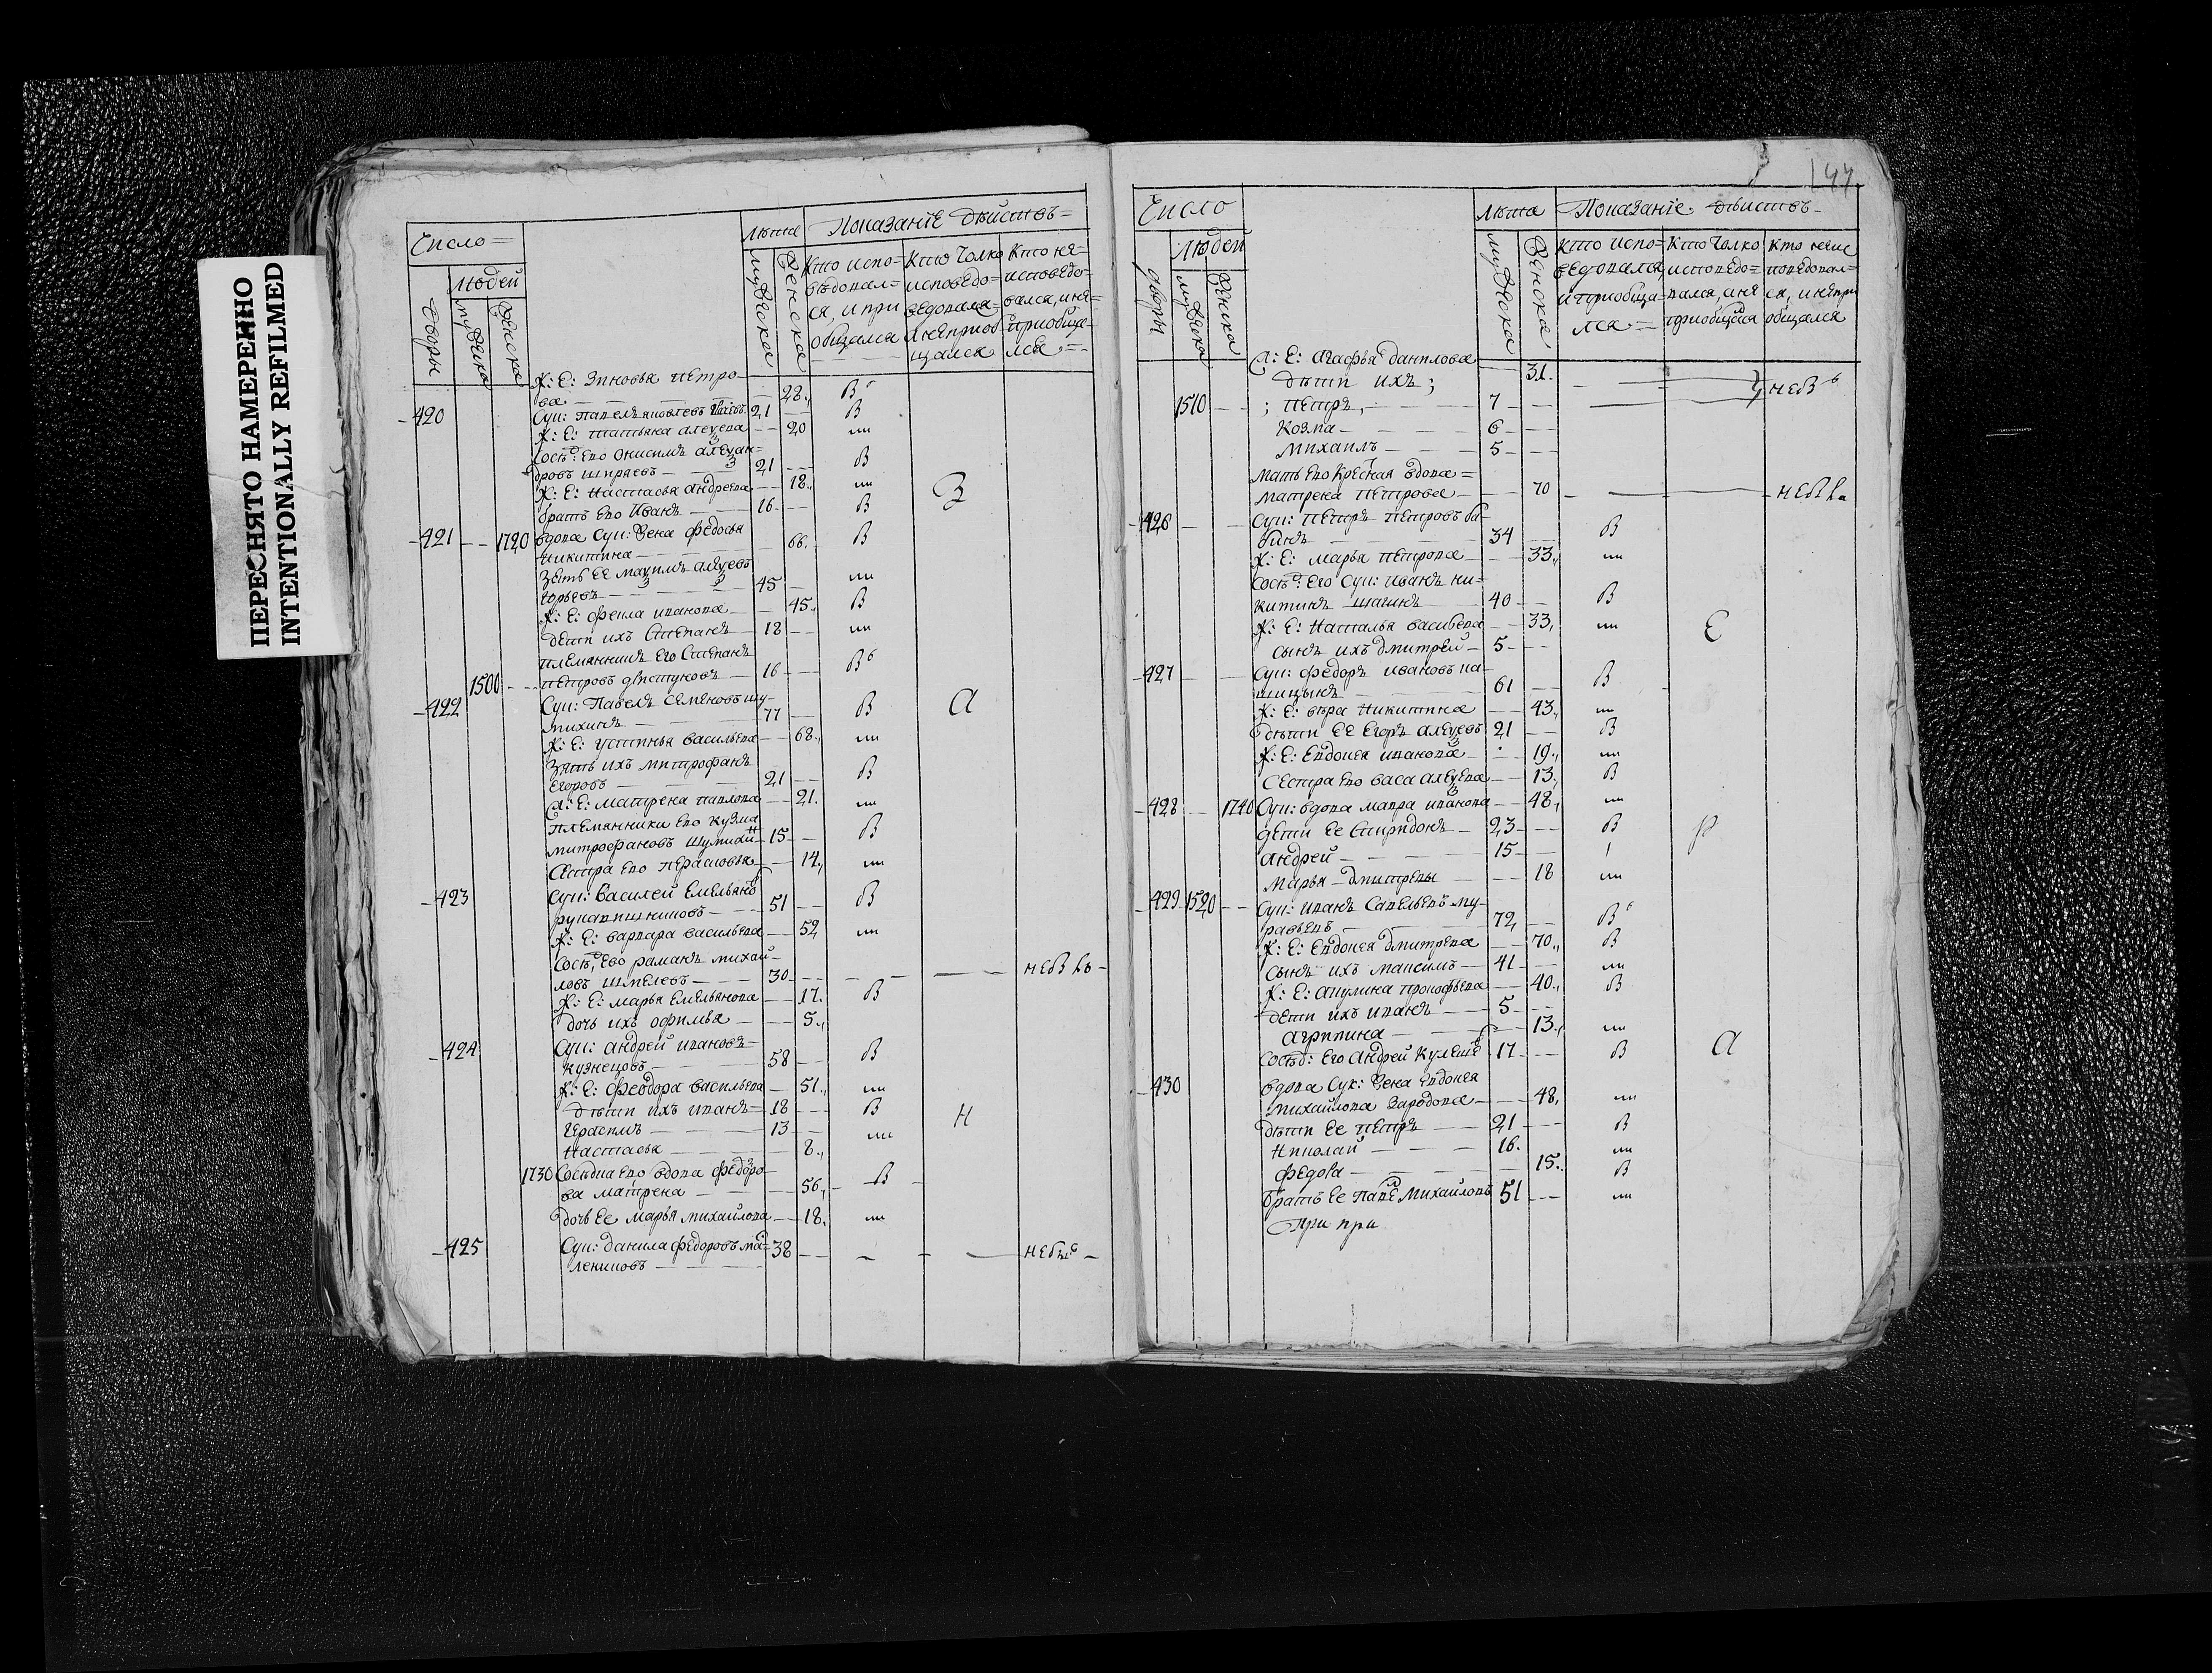 ПЕРЕСНЯТО НАМЕРЕННО
INTENTIONALLY REFILMED
Число Лѣта Показанїе дѣиствъ
Людей
дворы мужеска женска мужеска женска
Кто испо=
вѣдовал=
ся, и при
общался
Кто толко
исповедо=
а непрıоб
щался
Кто не=
исповедо=
вался, и не=
приобща=
лся
Ж: Е: Зиновья петро
ва 28 В
420 Суп: павелъ яковлевъ 21 В
Ж: Е: татьяна алеѯева 20
сосѣд: его онисимъ алеѯан=
дровъ ширяевъ 21 В
Ж: Е: настасья андреева 18 З
братъ его иванъ 16 В
421 1720 вдова суп: жена федосья
никитина 66 В
зять ее маѯимъ алеѯевъ
юрьевъ 45
Ж: Е: фекла иванова 45 В
дети ихъ степанъ 18
племянникъ его степанъ
1500 петровъ 16 В
422 Суп: павелъ семеновъ шу
михинъ 77 В а
Ж: Е: устинья васильева 68
зять ихъ митрофанъ
егоровъ 21 В
Ж: Е: матрена павлова 21
племянники его кузма
митрофановъ 15 В
сестра его парасковья 14
423 Суп: василей емельяно
51 В
Ж: Е: варвара васильева 52
сосѣд: его раманъ михай
ловъ шмелевъ 30
Ж: Е: марья емельянова 17 В
дочь ихъ офимья 5
424 Суп: андрей ивановъ
кузнецовъ 58 В
Ж: Е: феодора васильева 51
дѣти ихъ иванъ 18 В Н
герасимъ 13
настасья 8
1730 Соседка его вдова федоро
ва матрена 56 В
дочь ее марья михайлова 18
425 Суп: данила федоровъ ма
лениковъ 38
147
Число Лѣта Показанїе дѣиствъ
Людей
дворы мужеска женска мужеска женска
Кто испо=
ведовался
и приобща=
лся
Кто толко
исповедо=
вался, и не
приобщался
Кто неис
поведовал=
ся, и непри
общался
Ж: Е: агафья данилова 31
дѣти ихъ;
1510 петръ 7
козма 6
михаилъ 5
мать его крестная вдова
матрена петрова 70
426 Суп: петръ петровъ ба
бинъ 34 В
Ж: Е: марья петрова 33
сосѣд: его суп: иванъ ни=
китинъ шагинъ 40 В
Ж: Е: наталья васильева 33 Е
сынъ ихъ дмитрей 5
427 Суп: федоръ ивановъ па
шицынъ 61 В
Ж: Е: вѣра никитина 43
дѣти ее егоръ алеѯевъ 21 В
Ж: Е: евдокея иванова 19
сестра его васа алеѯева 13 В
428 1740 Суп: вдова мавра иванова 48
дети ее спиридонъ 23 В Р
андрей 15
марья дмитревы 18
429 1520 Суп: иванъ савельевъ му
равьевъ 72 В
Ж: Е: евдокея дмитрева 70 В
сынъ ихъ максимъ 41
Ж: Е: акулина прокофьева 40 В
дети ихъ иванъ 5
агрипина 13
сосѣд: его андрей 17 В а
430 вдова сук: жена евдокея
михайлова 48
дѣти ее петръ 21 В
николай 16
федо 15 В
братъ ее михайловъ 51
При при